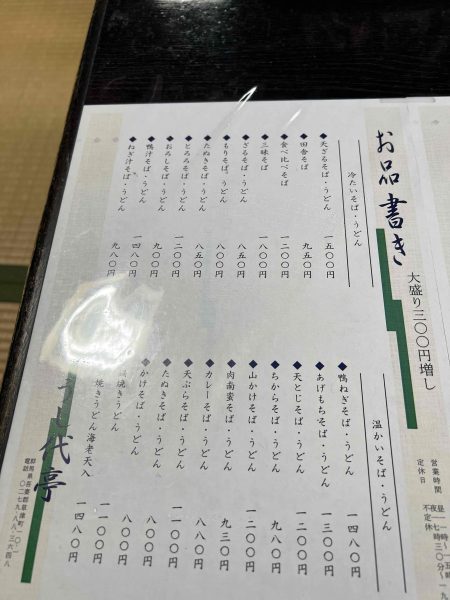 お品書き
大盛り三〇〇円増し
営業時間
定休日
不定休
冷たいそば・うどん
◆天ざるそば・うどん 一五〇〇円
◆田舎そば 九五〇円
◆食べ比べそば 一二〇〇円
◆三味そば 一八〇〇円
◆ざるそば・うどん 八五〇円
◆もりそば、うどん 八〇〇円
◆たぬきそば・うどん 八五〇円
◆とろろそば・うどん 一二〇〇円
◆おろしそば・うどん 九〇〇円
◆鴨汁そば・うどん 一四八〇円
◆ねぎ汁そば・うどん 九八〇円
温かいそば・うどん
◆鴨ねぎそば・うどん 一四八〇円
◆あげもちそば・うどん 一三〇〇円
◆天とじそば・うどん 一二〇〇円
◆ちからそば・うどん 九八〇円
◆山かけそば・うどん 一二〇〇円
◆肉南蛮そば・うどん 九三〇円
◆カレーそば・うどん 八八〇円
◆天ぷらそば・うどん 一一〇〇円
◆たぬきそば・うどん 八〇〇円
◆かけそば・うどん 八〇〇円
焼きうどん 一一〇〇円
焼きうどん海老天入 一四八〇円
代亭
群馬県吾妻郡草津町
電話 〇二七九-八八-三六四八